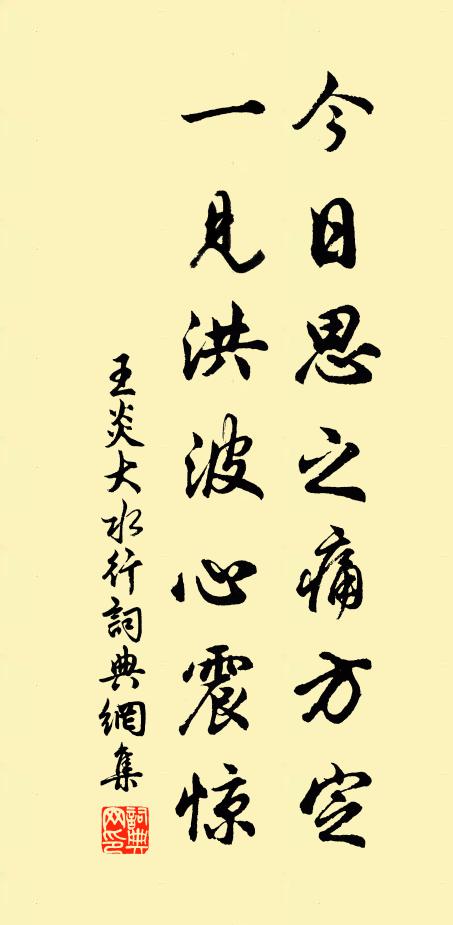 今日思之痛方定
一见洪波心震惊
王炎大水行詞典網集
詞典网印